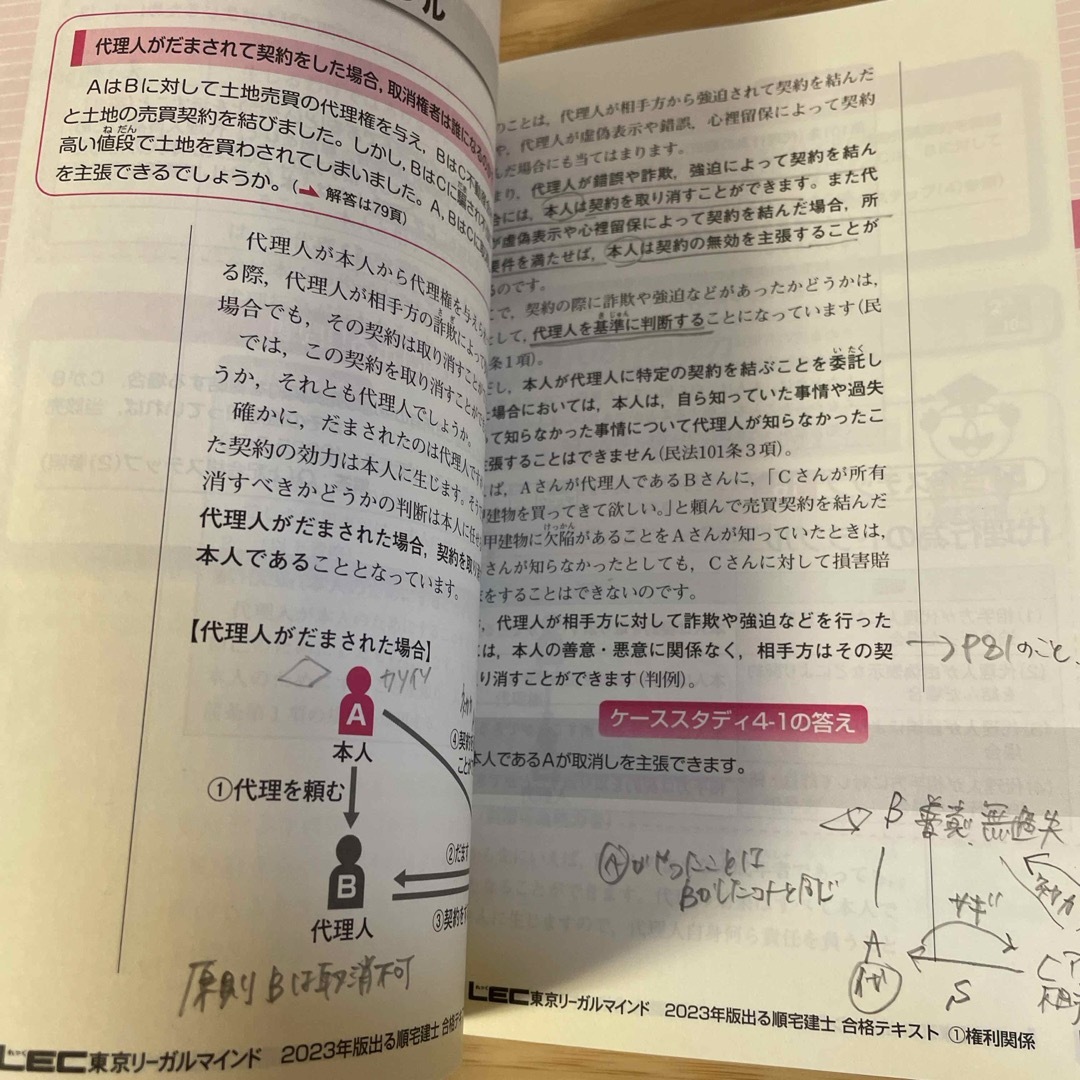 ル
代理人がだまされて契約をした場合,取消権者は誰になるの
AはBに対して土地売買の代理権を与え,BはC不動
と土地の売買契約を結びました。しかし,BはCに騙され
高い値段で土地を買わされてしまいました。A,BはCに
を主張できるでしょうか。(➡ 解答は79頁)
代理人が本人から代理権を与えら
る際,代理人が相手方の詐欺によって
場合でも,その契約は取り消すことが
では,この契約を取り消すことができ
うか,それとも代理人でしょうか。
確かに,だまされたのは代理人です
た契約の効力は本人に生じます。そう
消すべきかどうかの判断は本人に任せ
代理人がだまされた場合,契約を取り
本人であることとなっています。
【代理人がだまされた場合】
A
本人
①代理を頼む
B
代理人
②だます
③契約を
④契約
ことが
原則 Bは取消不可
LEC東京リーガルマインド 2023年版出る順宅建士 合格テキ
のことは,代理人が相手方から強迫されて契約を結んだ
や,代理人が虚偽表示や錯誤,心裡留保によって契約
んだ場合にも当てはまります。
まり,代理人が錯誤や詐欺,強迫によって契約を結ん
合には,本人は契約を取り消すことができます。また代
が虚偽表示や心裡留保によって契約を結んだ場合,所
要件を満たせば,本人は契約の無効を主張することが
るのです。
こで,契約の際に詐欺や強迫などがあったかどうかは,
として,代理人を基準に判断することになっています(民
条1項)。
だし,本人が代理人に特定の契約を結ぶことを委託し
場合においては,本人は,自ら知っていた事情や過失
って知らなかった事情について代理人が知らなかったこ
主張することはできません(民法101条3項)。
えば,Aさんが代理人であるBさんに,「Cさんが所有
甲建物を買ってきて欲しい。」と頼んで売買契約を結んだ
甲建物に欠陥があることをAさんが知っていたときは,
さんが知らなかったとしても,Cさんに対して損害賠
をすることはできないのです。
代理人が相手方に対して詐欺や強迫などを行った
は,本人の善意・悪意に関係なく,相手方はその契
り消すことができます(判例)。
→P81のこと
ケーススタディ4-1の答え
本人であるAが取消しを主張できます。
B 善意無過失
Ⓐがやったことは
Bがしたコトと同じ
サギ
A
S
LEC東京リーガルマインド 2023年版出る順宅建士 合格テキスト ①権利関係